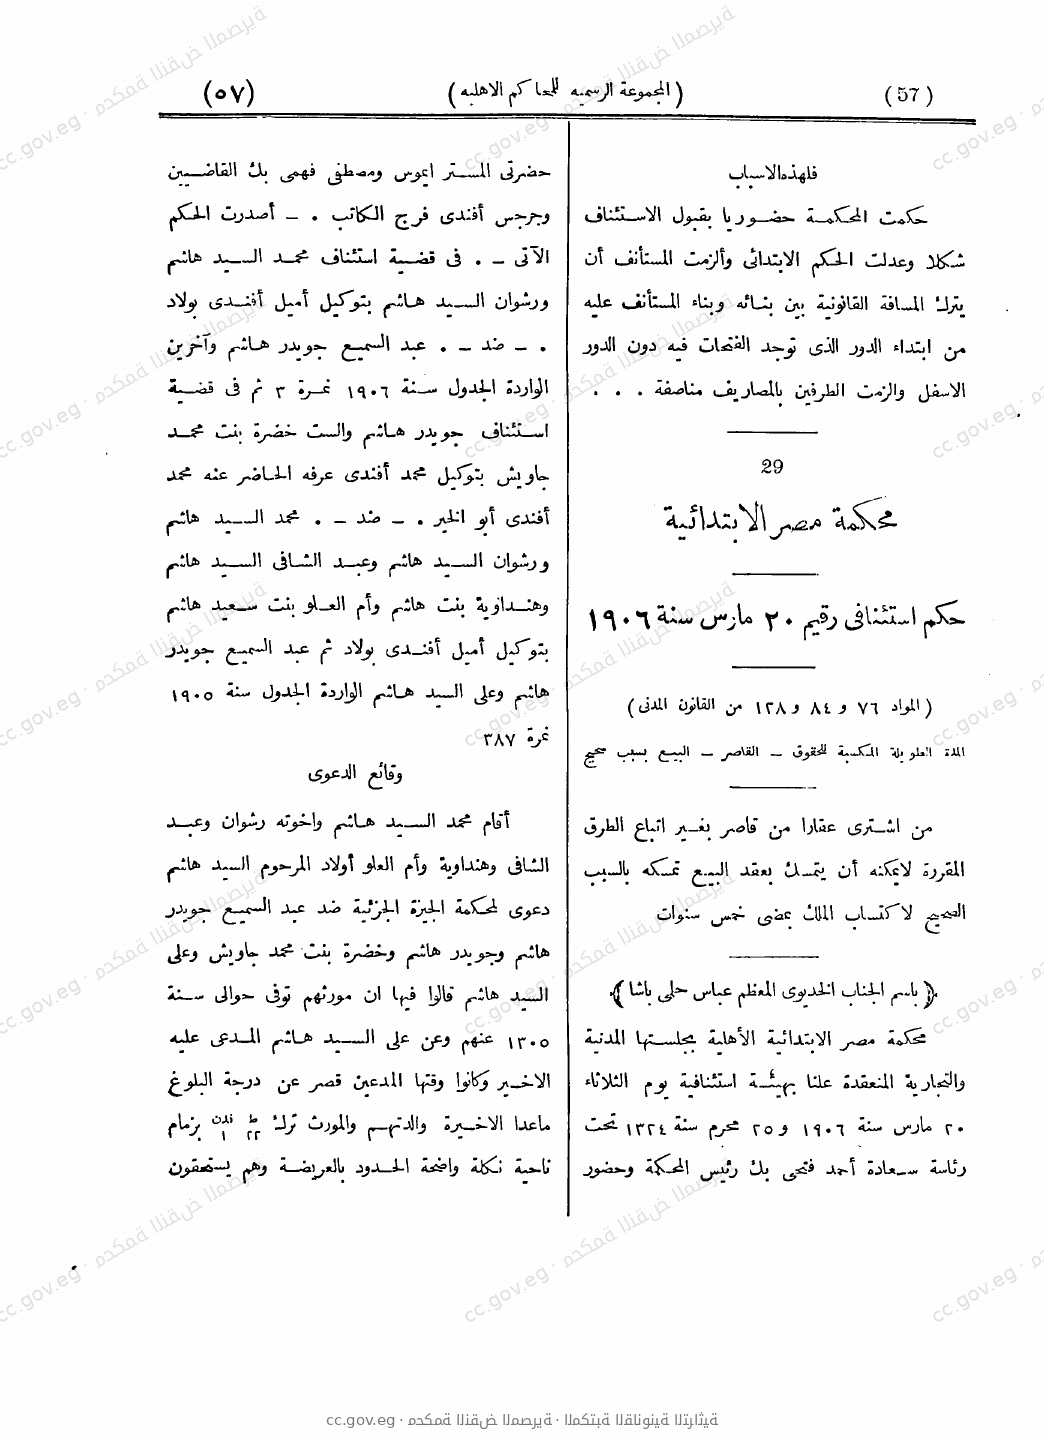 (57)
(المجموعة الرسميه للمحاكم الاهليه)
(٥٧)
فلهذه الاسباب
حكمت المحكمة حضوريا بقبول الاستئناف
شكلا وعدلت الحكم الابتدائى وألزمت المستأنف أن
يترك المسافة القانونية بين بنائه وبناء المستأنف عليه
من ابتداء الدور الذى توجد الفتحات فيه دون الدور
الاسفل والزمت الطرفين بالمصاريف مناصفة . . .
29
محكمة مصر الابتدائية
حكم استئنافى رقيم ٢٠ مارس سنة ١٩٠٦
(المواد ٧٦ و ٨٤ و ١٢٨ من القانون المدنى)
المدة الطويلة المكسبة للحقوق – القاصر – البيع بسبب صحيح
من اشترى عقارا من قاصر بغير اتباع الطرق
المقررة لايمكنه أن يتمسك بعقد البيع تمسكه بالسبب
الصحيح لاكتساب الملك بمضى خمس سنوات
(باسم الجناب الخديوى المعظم عباس حلمى باشا)
محكمة مصر الابتدائية الأهلية بجلستها المدنية
والتجارية المنعقدة علنا بهيئة استئنافية يوم الثلاثاء
٢٠ مارس سنة ١٩٠٦ و ٢٥ محرم سنة ١٣٢٤ تحت
رئاسة سعادة أحمد فتحى بك رئيس المحكمة وحضور
حضرتى المستر ايموس ومصطفى فهمى بك القاضيين
وجرجس أفندى فرج الكاتب . – أصدرت الحكم
الآتى – . فى قضية استئناف محمد السيد هاشم
ورشوان السيد هاشم بتوكيل أميل أفندى بولاد
. – ضد – . عبد السميع جويدر هاشم وآخرين
الواردة الجدول سنة ١٩٠٦ نمرة ٣ ثم فى قضية
استئناف جويدر هاشم والست خضرة بنت محمد
جاويش بتوكيل محمد أفندى عرفه الحاضر عنه محمد
أفندى أبو الخير . – ضد – . محمد السيد هاشم
ورشوان السيد هاشم وعبد الشافى السيد هاشم
وهنداوية بنت هاشم وأم العلو بنت سعيد هاشم
بتوكيل أميل أفندى بولاد ثم عبد السميع جويدر
هاشم وعلى السيد هاشم الواردة الجدول سنة ١٩٠٥
نمرة ٣٨٧
وقائع الدعوى
أقام محمد السيد هاشم واخوته رشوان وعبد
الشافى وهنداوية وأم العلو أولاد المرحوم السيد هاشم
دعوى لمحكمة الجيزة الجزئية ضد عبد السميع جويدر
هاشم وجويدر هاشم وخضرة بنت محمد جاويش وعلى
السيد هاشم قالوا فيها ان مورثهم توفى حوالى سنة
١٣٠٥ عنهم وعن على السيد هاشم المدعى عليه
الاخير وكانوا وقتها المدعين قصر عن درجة البلوغ
ماعدا الاخيرة والدتهم والمورث ترك ط ٢٢ فدن ١ بزمام
ناحية نكلة واضحة الحدود بالعريضة وهم يستحقون
cc.gov.eg · محكمة النقض المصرية · المكتبة القانونية التراثية